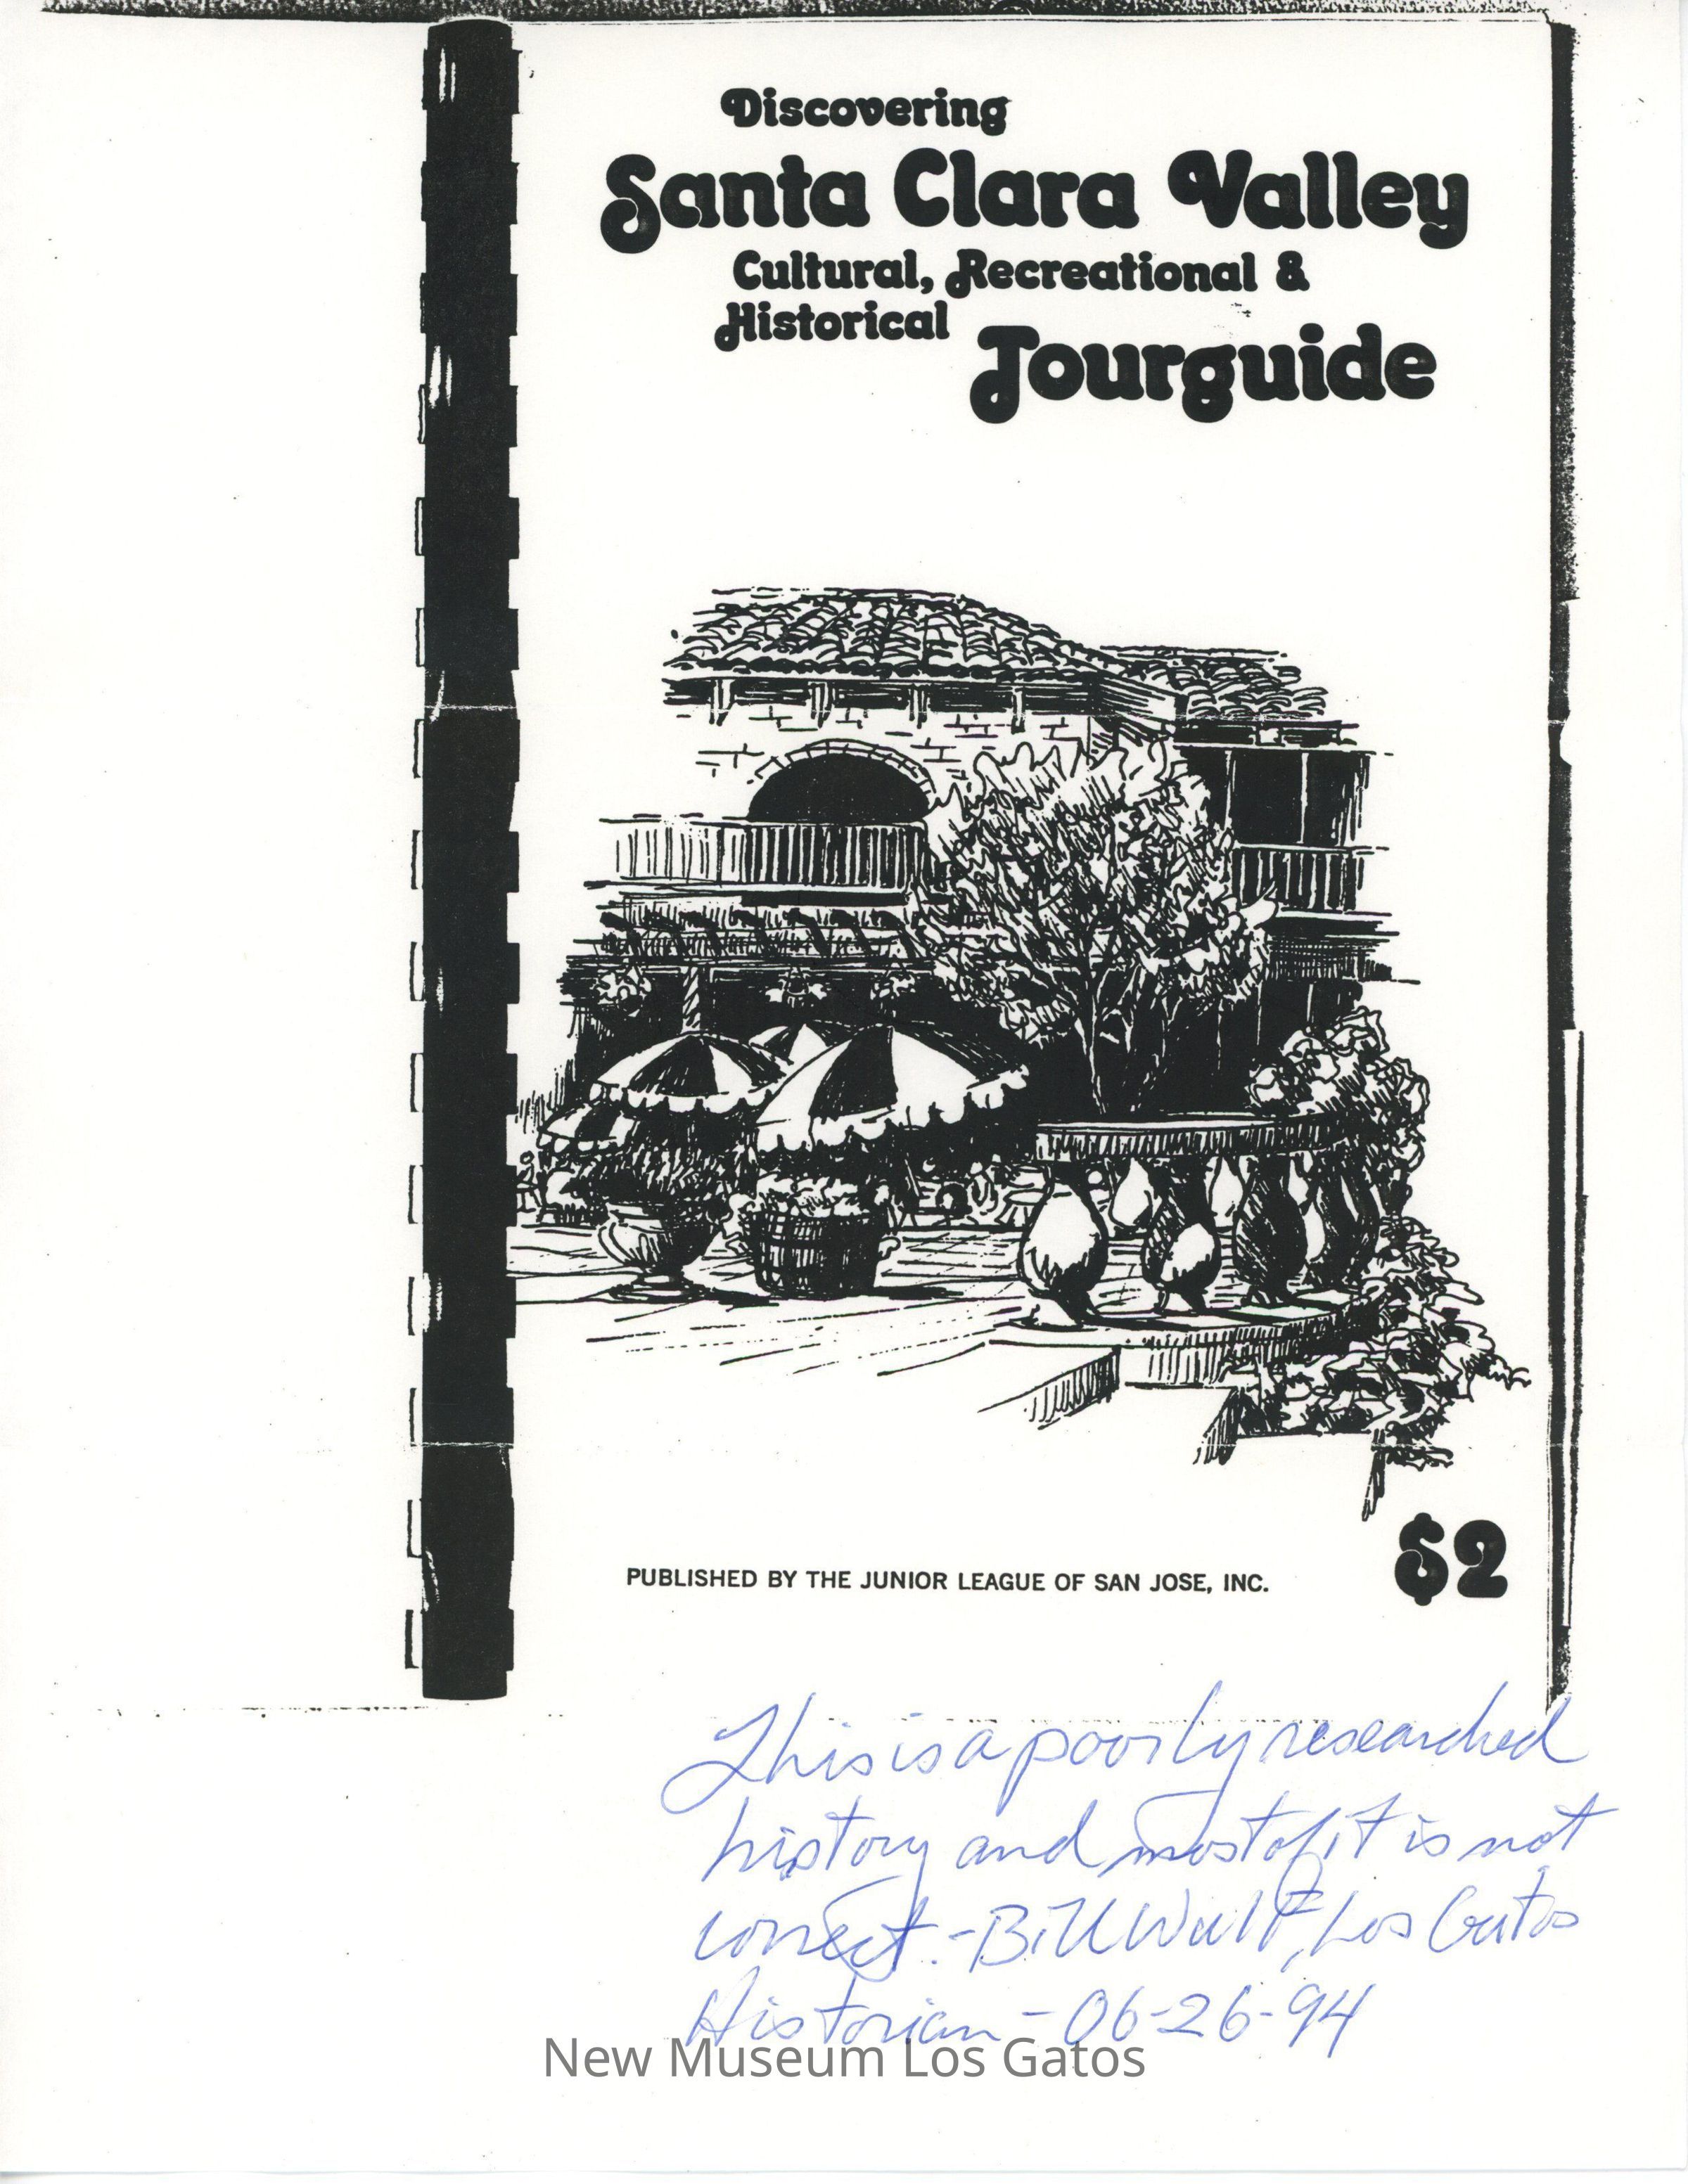 Discovering
Santa Clara Valley
Cultural, Recreational &
Historical
Tourguide
$2
PUBLISHED BY THE JUNIOR LEAGUE OF SAN JOSE, INC.
This is a poorly researched
history and most of it is not
correct. - Bill Wulf, Los Gatos
Historian - 06-26-94
New Museum Los Gatos